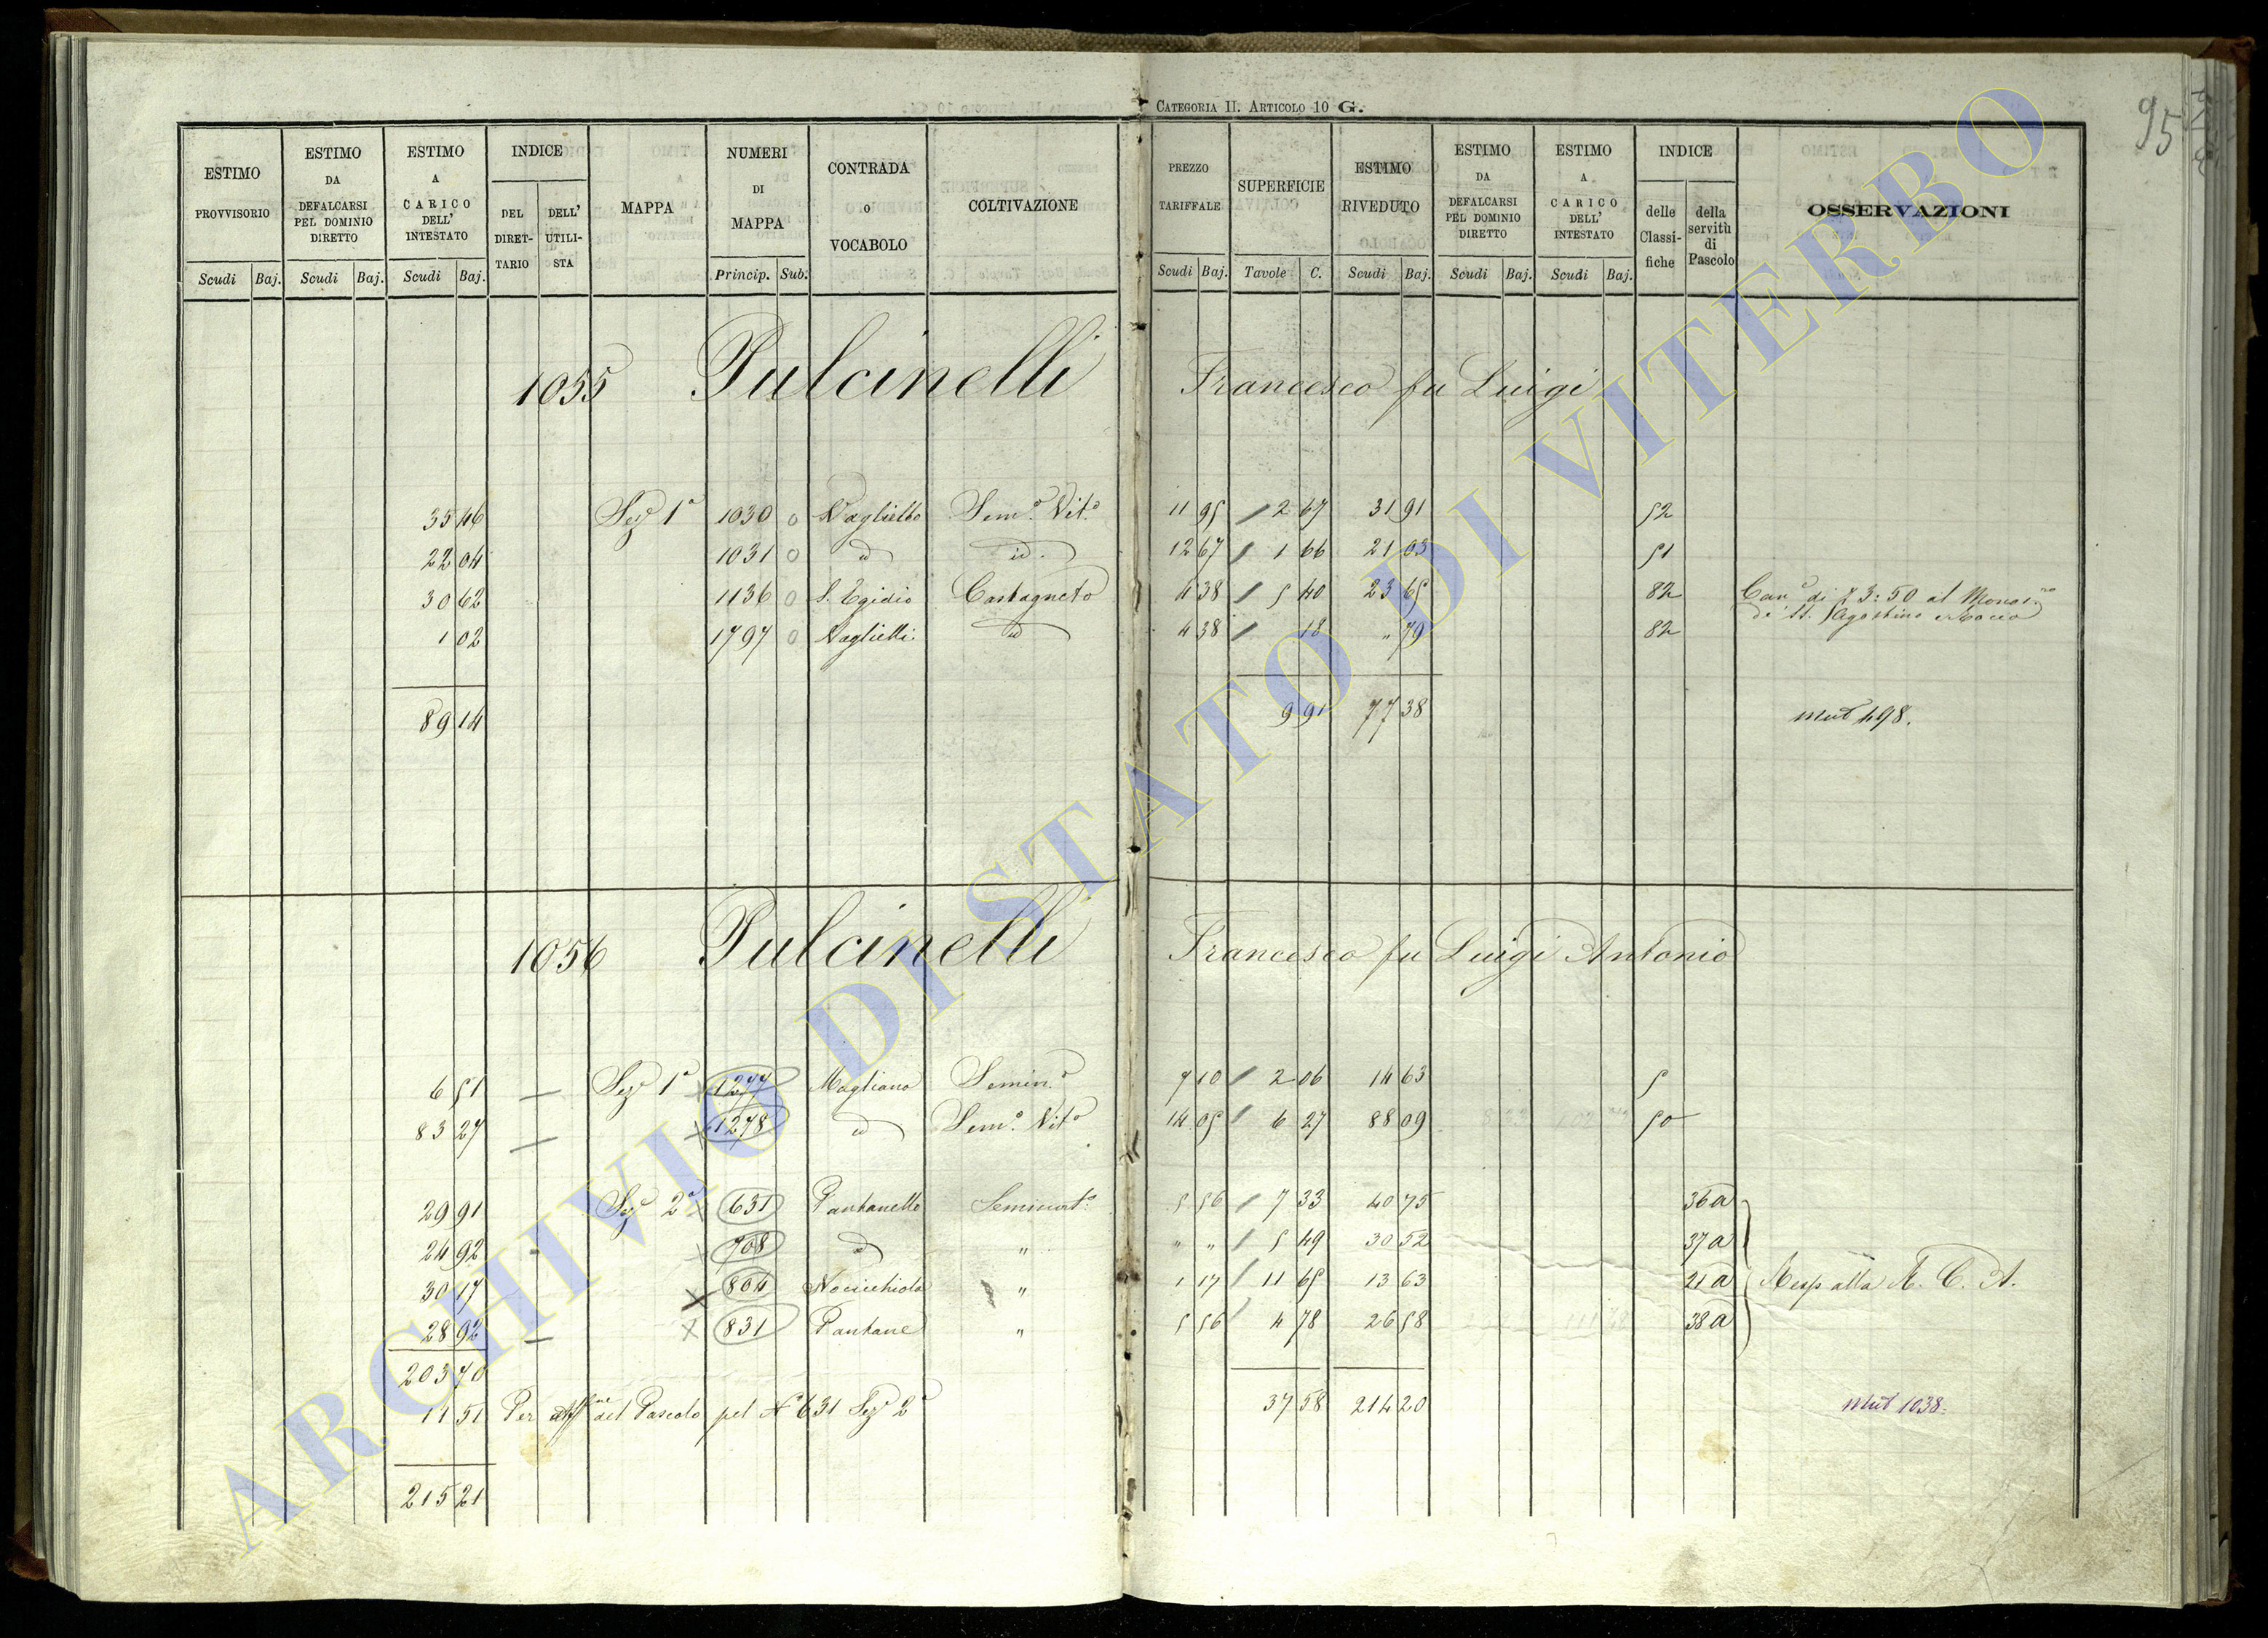 CATEGORIA II. ARTICOLO 10 G.
95
ESTIMO PROVVISORIO | ESTIMO DA DEFALCARSI PEL DOMINIO DIRETTO | ESTIMO A CARICO DELL' INTESTATO | INDICE | MAPPA | NUMERI DI MAPPA | CONTRADA O VOCABOLO | COLTIVAZIONE | PREZZO TARIFFALE | SUPERFICIE | ESTIMO RIVEDUTO | ESTIMO DA DEFALCARSI PEL DOMINIO DIRETTO | ESTIMO A CARICO DELL' INTESTATO | INDICE | OSSERVAZIONI
DEL DIRETTARIO | DELL' UTILISTA | delle Classifiche | della servitù di Pascolo
Scudi Baj. | Scudi Baj. | Scudi Baj. | Princip. Sub. | Scudi Baj. | Tavole C. | Scudi Baj. | Scudi Baj. | Scudi Baj.
1055 Pulcinelli Francesco fu Luigi
35 46 Sez 1a 1030 0 Vaglietto Semo. Vito. 11 95 / 2 67 31 91 52
22 04 1031 0 id id. 12 67 / 1 66 21 03 51
30 62 1136 0 S. Egidio Castagneto 4 38 / 5 40 23 65 82
de' SS. Agostino e Rocco
1 02 1797 0 Vaglietti id 4 38 / 18 „ 79 82
89 14 9 91 77 38 Mut 498.
1056 Pulcinelli Francesco fu Luigi Antonio
6 51 — Sez 1a x 1277 Magliano Semin.o 7 10 / 2 06 14 63 5
83 27 — x 1278 id Semo. Vito 14 05 / 6 27 88 09 50
29 91 Sez 2a x 631 Pantanelle Seminato. 5 56 / 7 33 40 75 36a
24 92 - x 708 id „ „ „ / 5 49 30 52 37a
30 17 x 804 Nocicchiola „ 1 17 / 11 65 13 63 21a Resp alla R. C. A.
28 92 — x 831 Pantane „ 5 56 / 4 78 26 58 38a
203 70
11 51 Per del Pascolo pel No 631 Sez 2a 37 58 214 20 Mut 1038.
215 21
ARCHIVIO DI STATO DI VITERBO